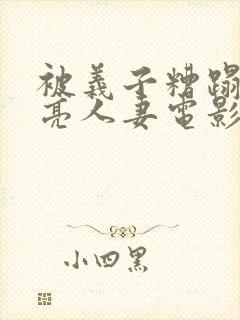 被義子糟蹋
亮人妻電影
小四黑